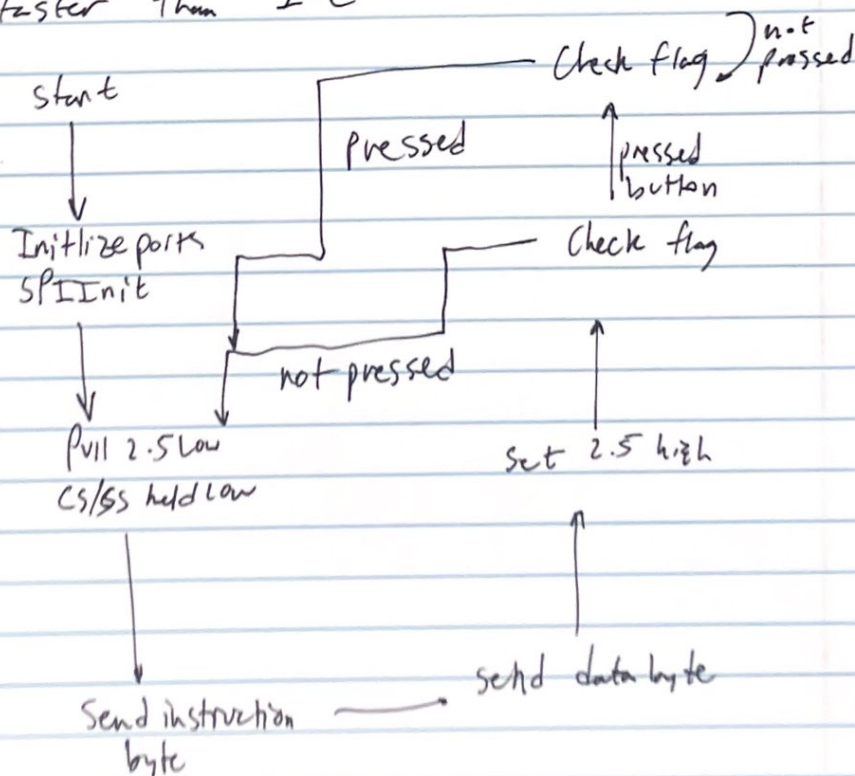 faster than I C
Start
Initlize ports
SPIInit
Pull 2.5 Low
CS/SS held low
Send instruction
byte
send data byte
set 2.5 high
Check flag
not pressed
pressed
button
Check flag
not
pressed
pressed